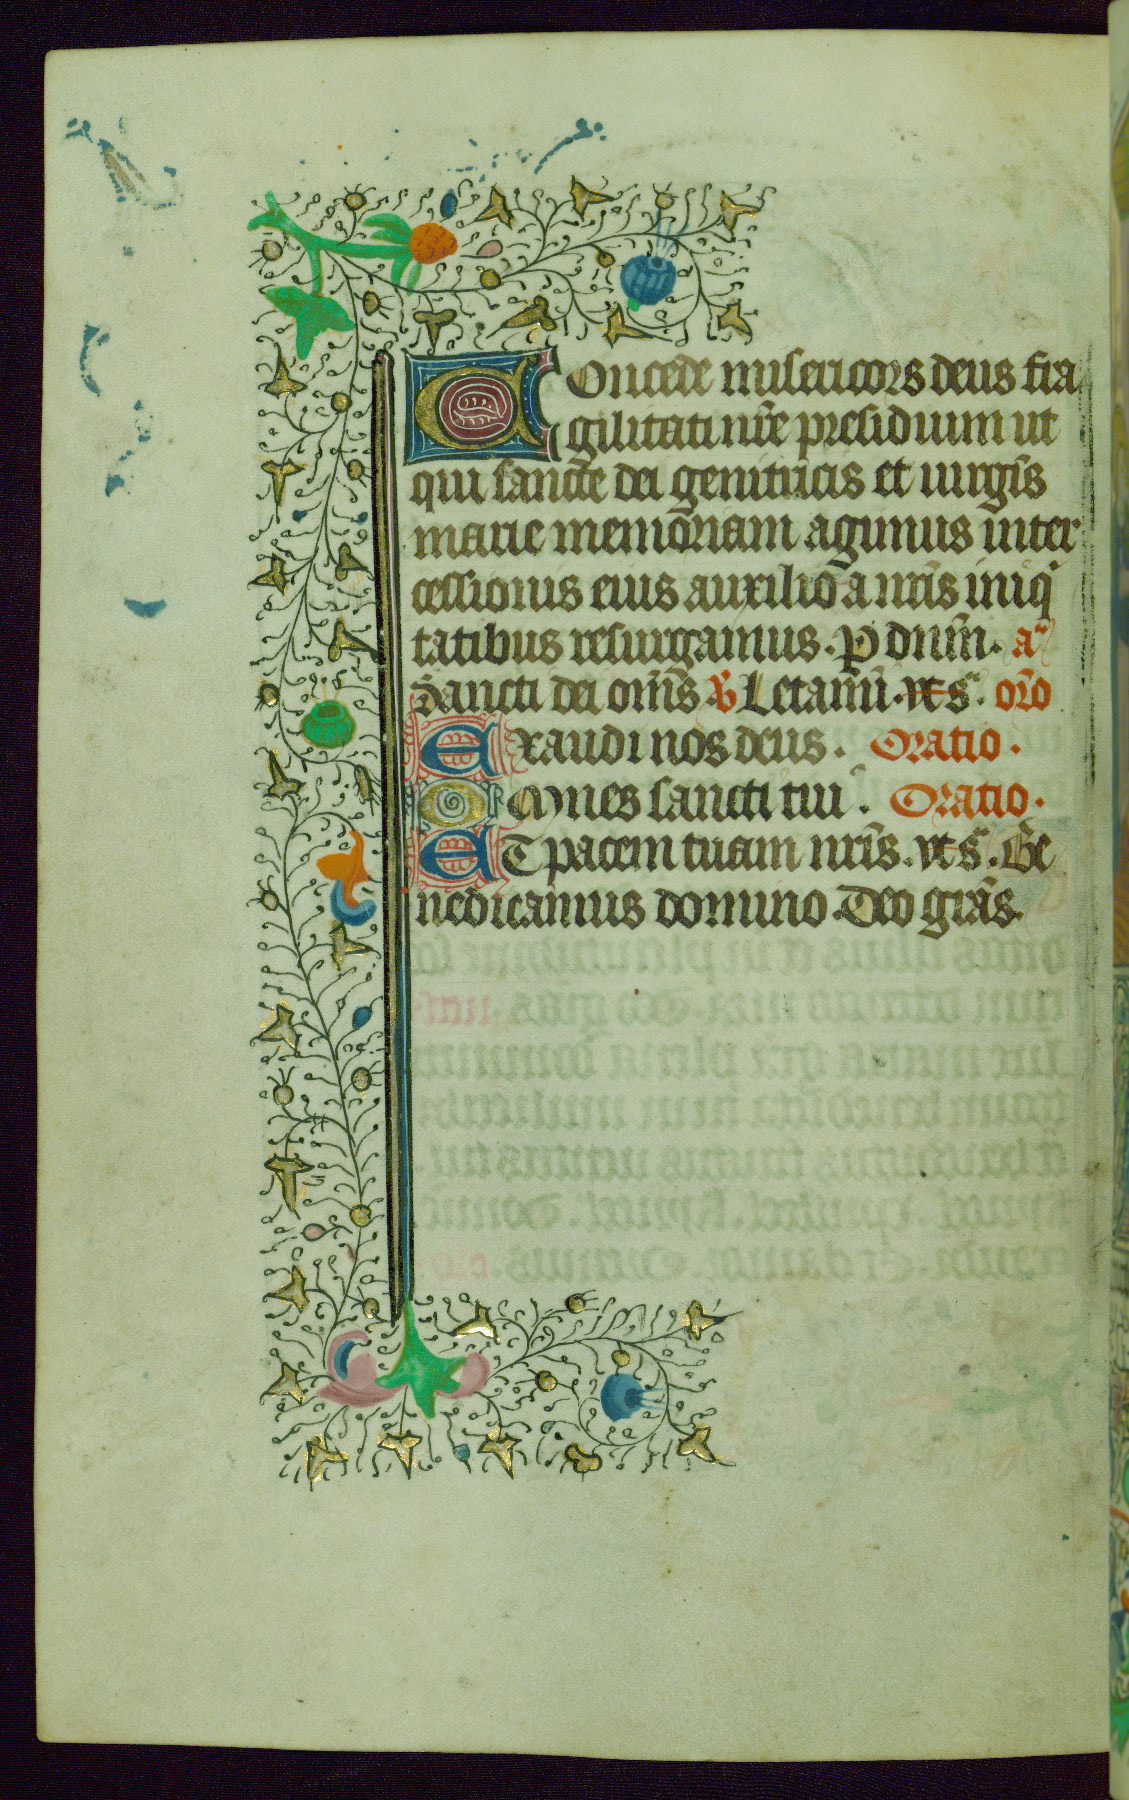 Concede misericors deus fra
gilitati nr̄e presidium ut
qui sancte dei genitricis et uirgīs
marie memoriam agimus inter
cessionis eius auxilio a nr̄is iniq
tatibus resurgamus. P dnm̄. aᵃ
Sancti dei om̄s ℣ Letamī. vt sᵃ. or̄o
Exaudi nos deus. Oratio.
Omnes sancti tui. Oratio.
ET pacem tuam nr̄is. vt sᵃ. Be
nedicamus domino. Deo gr̄as.